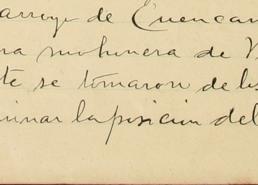 arroyo de Cuencam
na mohonera de V
te se tomaron de los
minar la posicion del